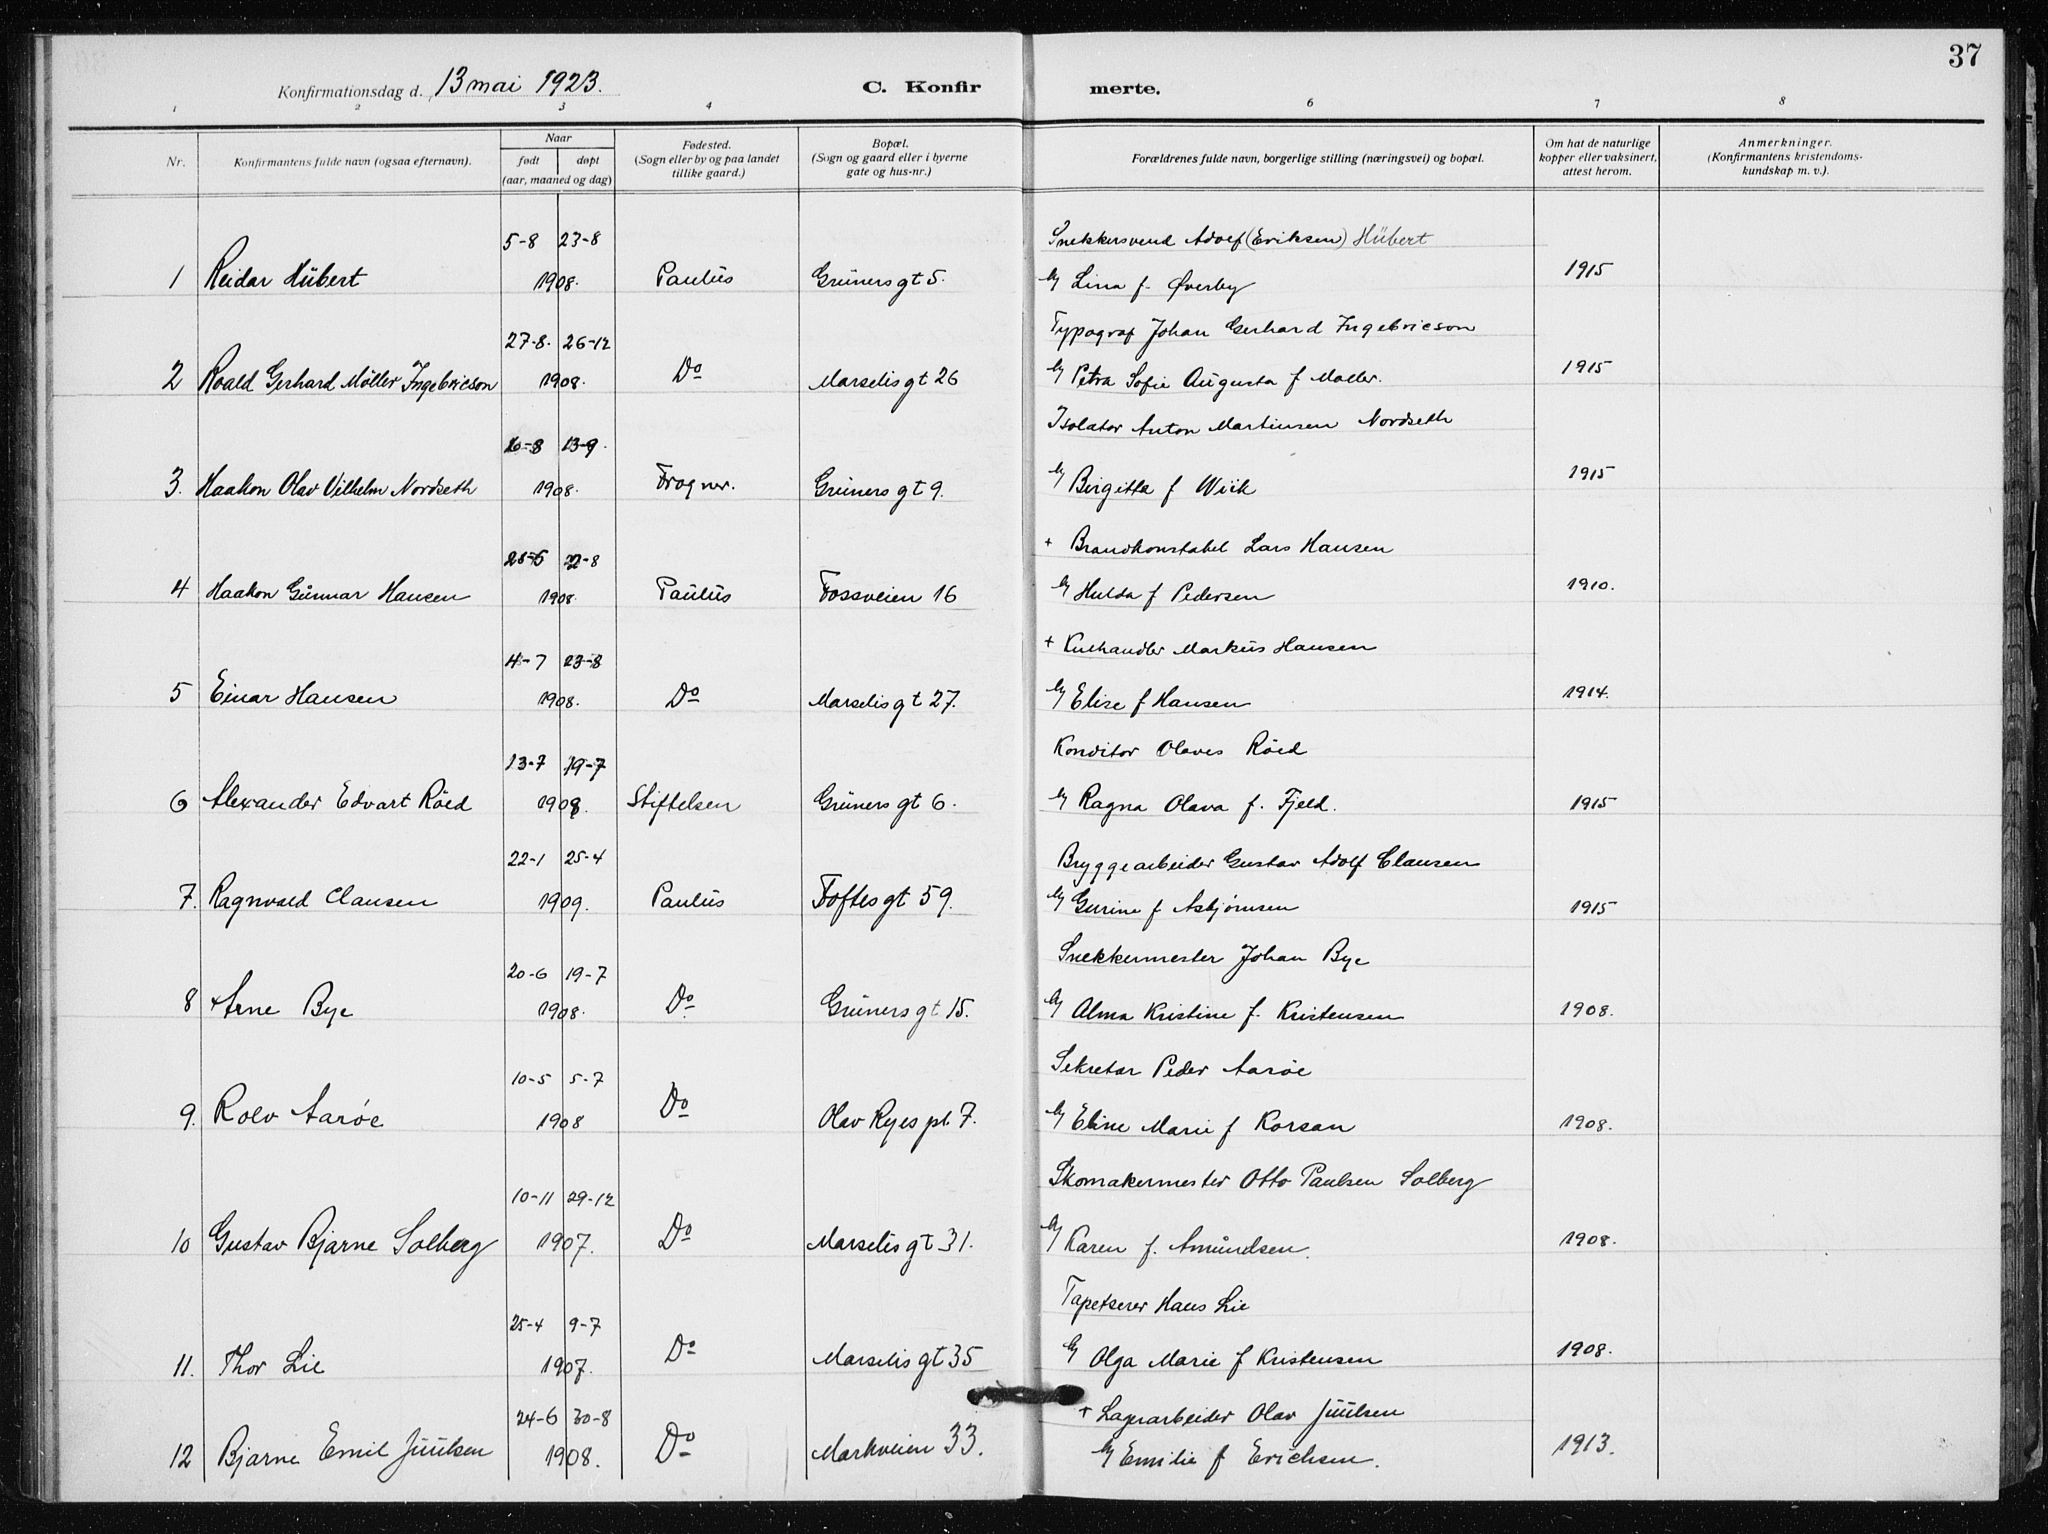 37
Konfirmationsdag d. 13 mai 1923. C. Konfir merte.
1 2 3 4 6 7 8
Nr. Konfirmantens fulde navn (ogsaa efternavn). Naar født døpt (aar, maaned og dag) Fødested. (Sogn eller by og paa landet tillike gaard.) Bopæl. (Sogn og gaard eller i byerne gate og hus-nr.) Forældrenes fulde navn, borgerlige stilling (næringsvei) og bopæl. Om hat de naturlige kopper eller vaksinert, attest herom. Anmerkninger. (Konfirmantens kristendoms-kundskap m. v.).
5-8 23-8 Snekkersvend Adolf (Eriksen) Hübert
1 Reidar Hübert 1908. Paulus Grüners gt 5. og Lina f. Øverby 1915
27-8. 26-12 Typograf Johan Gerhard Ingebricson
2 Roald Gerhard Möller Ingebricson 1908. Do Marselis gt 26 og Petra Sofie Augusta f Møller. 1915
16-8 13-9. Isolatør Anton Martinsen Nordseth
3. Haakon Olav Vilhelm Nordseth 1908. Frogner. Grüners gt 9. og Birgitta f Wiik 1915
2-8 + Brandkonstabel Lars Hansen
4 Haakon Gunnar Hansen 1908. Paulus Fossveien 16 og Hulda f Pedersen 1910.
4-7 23-8 + Kulhandler Markus Hansen
5 Einar Hansen 1908. Do Marselis gt 27. og Elise f Hansen 1914.
13-7 19-7 Konditor Olaves Röed
6 Alexander Edvart Röed 1908. Stiftelsen Grüners gt 6. og Ragna Olava f. Fjeld. 1915
22-1 25-4 Bryggearbeider Gustav Adolf Clausen
7. Ragnvald Clausen 1909. Paulus Toftes gt 59. og Gurine f Asbjørnsen 1915
20-6 19-7 Snekkermester Johan Bye
8 Arne Bye 1908. Do Grüners gt 15. og Alma Kristine f. Kristensen 1908.
10-5 5-7 Sekretær Peder Aarøe
9. Rolv Aarøe 1908 Do Olav Ryes pl. 7. og Eline Marie f Korsan 1908.
10-11 29-12 Skomakermester Otto Paulsen Solberg
10 Gustav Bjarne Solberg 1907. Do Marselis gt 31. og Karen f. Amundsen. 1908.
25-4 9-7 Tapetserer Hans Lie
11. Thor Lie 1907. Do Marselis gt 35 og Olga Marie f Kristensen 1908.
24-6 30-8 + Lagerarbeider Olav Juulsen
12 Bjarne Emil Juulsen 1908. Do Markveien 33. og Emilie f Erichsen. 1913.